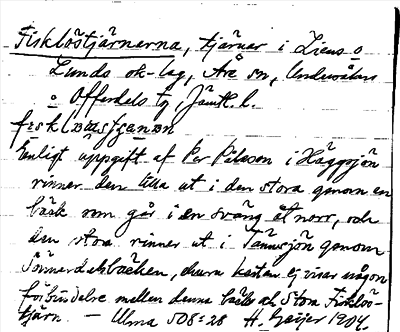 Fisklöstjärnerna, tjärnar i Liens o
Lunds ok-lag, Åre sn, Undersåkers
o Offerdals tg, Jämtl. l.
Enligt uppgift af Per Pålsson i Häggsjön
rinner den lilla ut i den stora genom en
bäck som går i en sväng åt norr, och
den stora rinner ut i Tännsjön genom
bäcken, denna kartan ej visar någon
förbindelse mellan denna bäck och stora Fisklös-
tjärn. — Ulma 508:28 H. Geijer 1904.